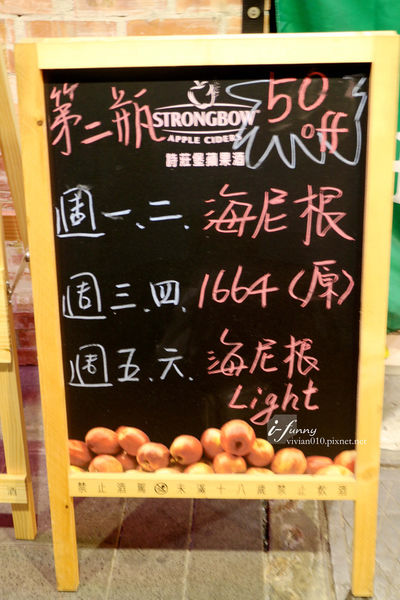 第二瓶 50 off
STRONGBOW
APPLE CIDERS
詩莊堡蘋果酒
週一、二、海尼根
週三、四、1664（原）
週五、六、海尼根
Light
i-funny
vivian010.pixnet.net
酒 禁止酒駕 未滿十八歲禁止飲酒